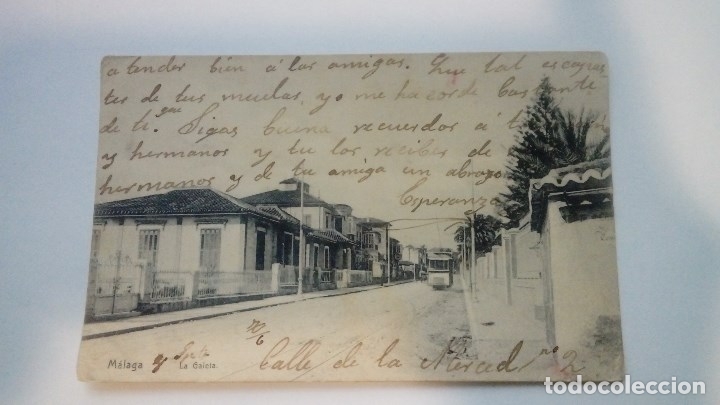 atender bien á las amigas. Que tal escapas
tes de tus muelas, yo me ha corde bastante
de ti. que Sigas buena recuerdos á t
y hermanos y tu los recibes de
hermanos y de tu amiga un abrazo
Esperanza
Málaga
La Caleta.
Calle de la Merced nº 2
todocoleccion.net